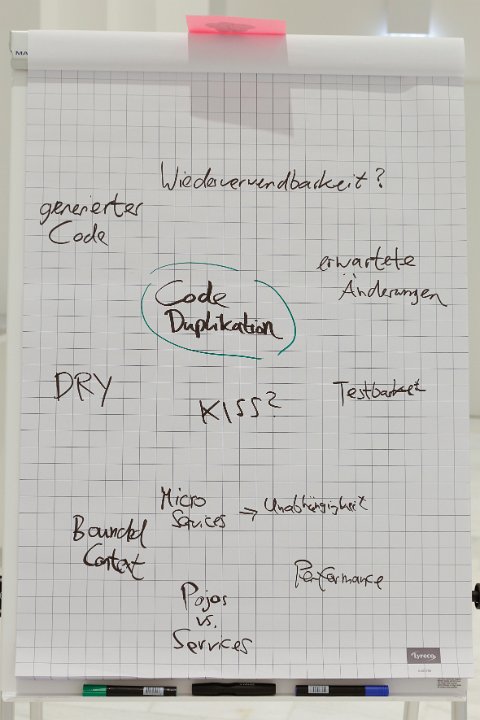 MA
Wiederverwendbarkeit?
generierter
Code
erwartete
Änderungen
Code
Duplikation
DRY
KISS?
Testbarkeit
Micro
Services → Unabhängigkeit
Bounded
Context
Performance
Pojos
vs.
Services
Lyreco